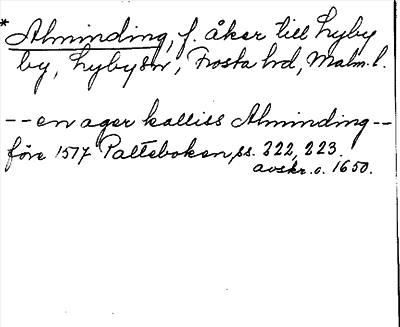 * Alminding, f. åker till Lyby
by, Lyby sn, Frosta hd, Malm. l.
-- en ager kalliss Alminding --
före 1517 Palteboken, ss. 222, 223.
avskr. c. 1650.